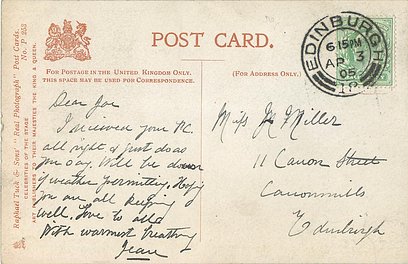 POST CARD.
FOR POSTAGE IN THE UNITED KINGDOM ONLY,
THIS SPACE MAY BE USED FOR CORRESPONDENCE.
(FOR ADDRESS ONLY.)
EDINBURGH
6 15PM
AP 3
05
Raphael Tuck & Sons' "Real Photograph" Post Cards.
No. P 253
CELEBRITIES OF THE STAGE
ART PUBLISHERS TO THEIR MAJESTIES THE KING & QUEEN.
Dear
I received your P.C.
all right & just do as
you say. Will be down
if weather permitting. Hoping
you are all keeping
well. Love to all
With warmest
Jean
Miss Miller
11 Canon Street
Canonmills
Edinburgh